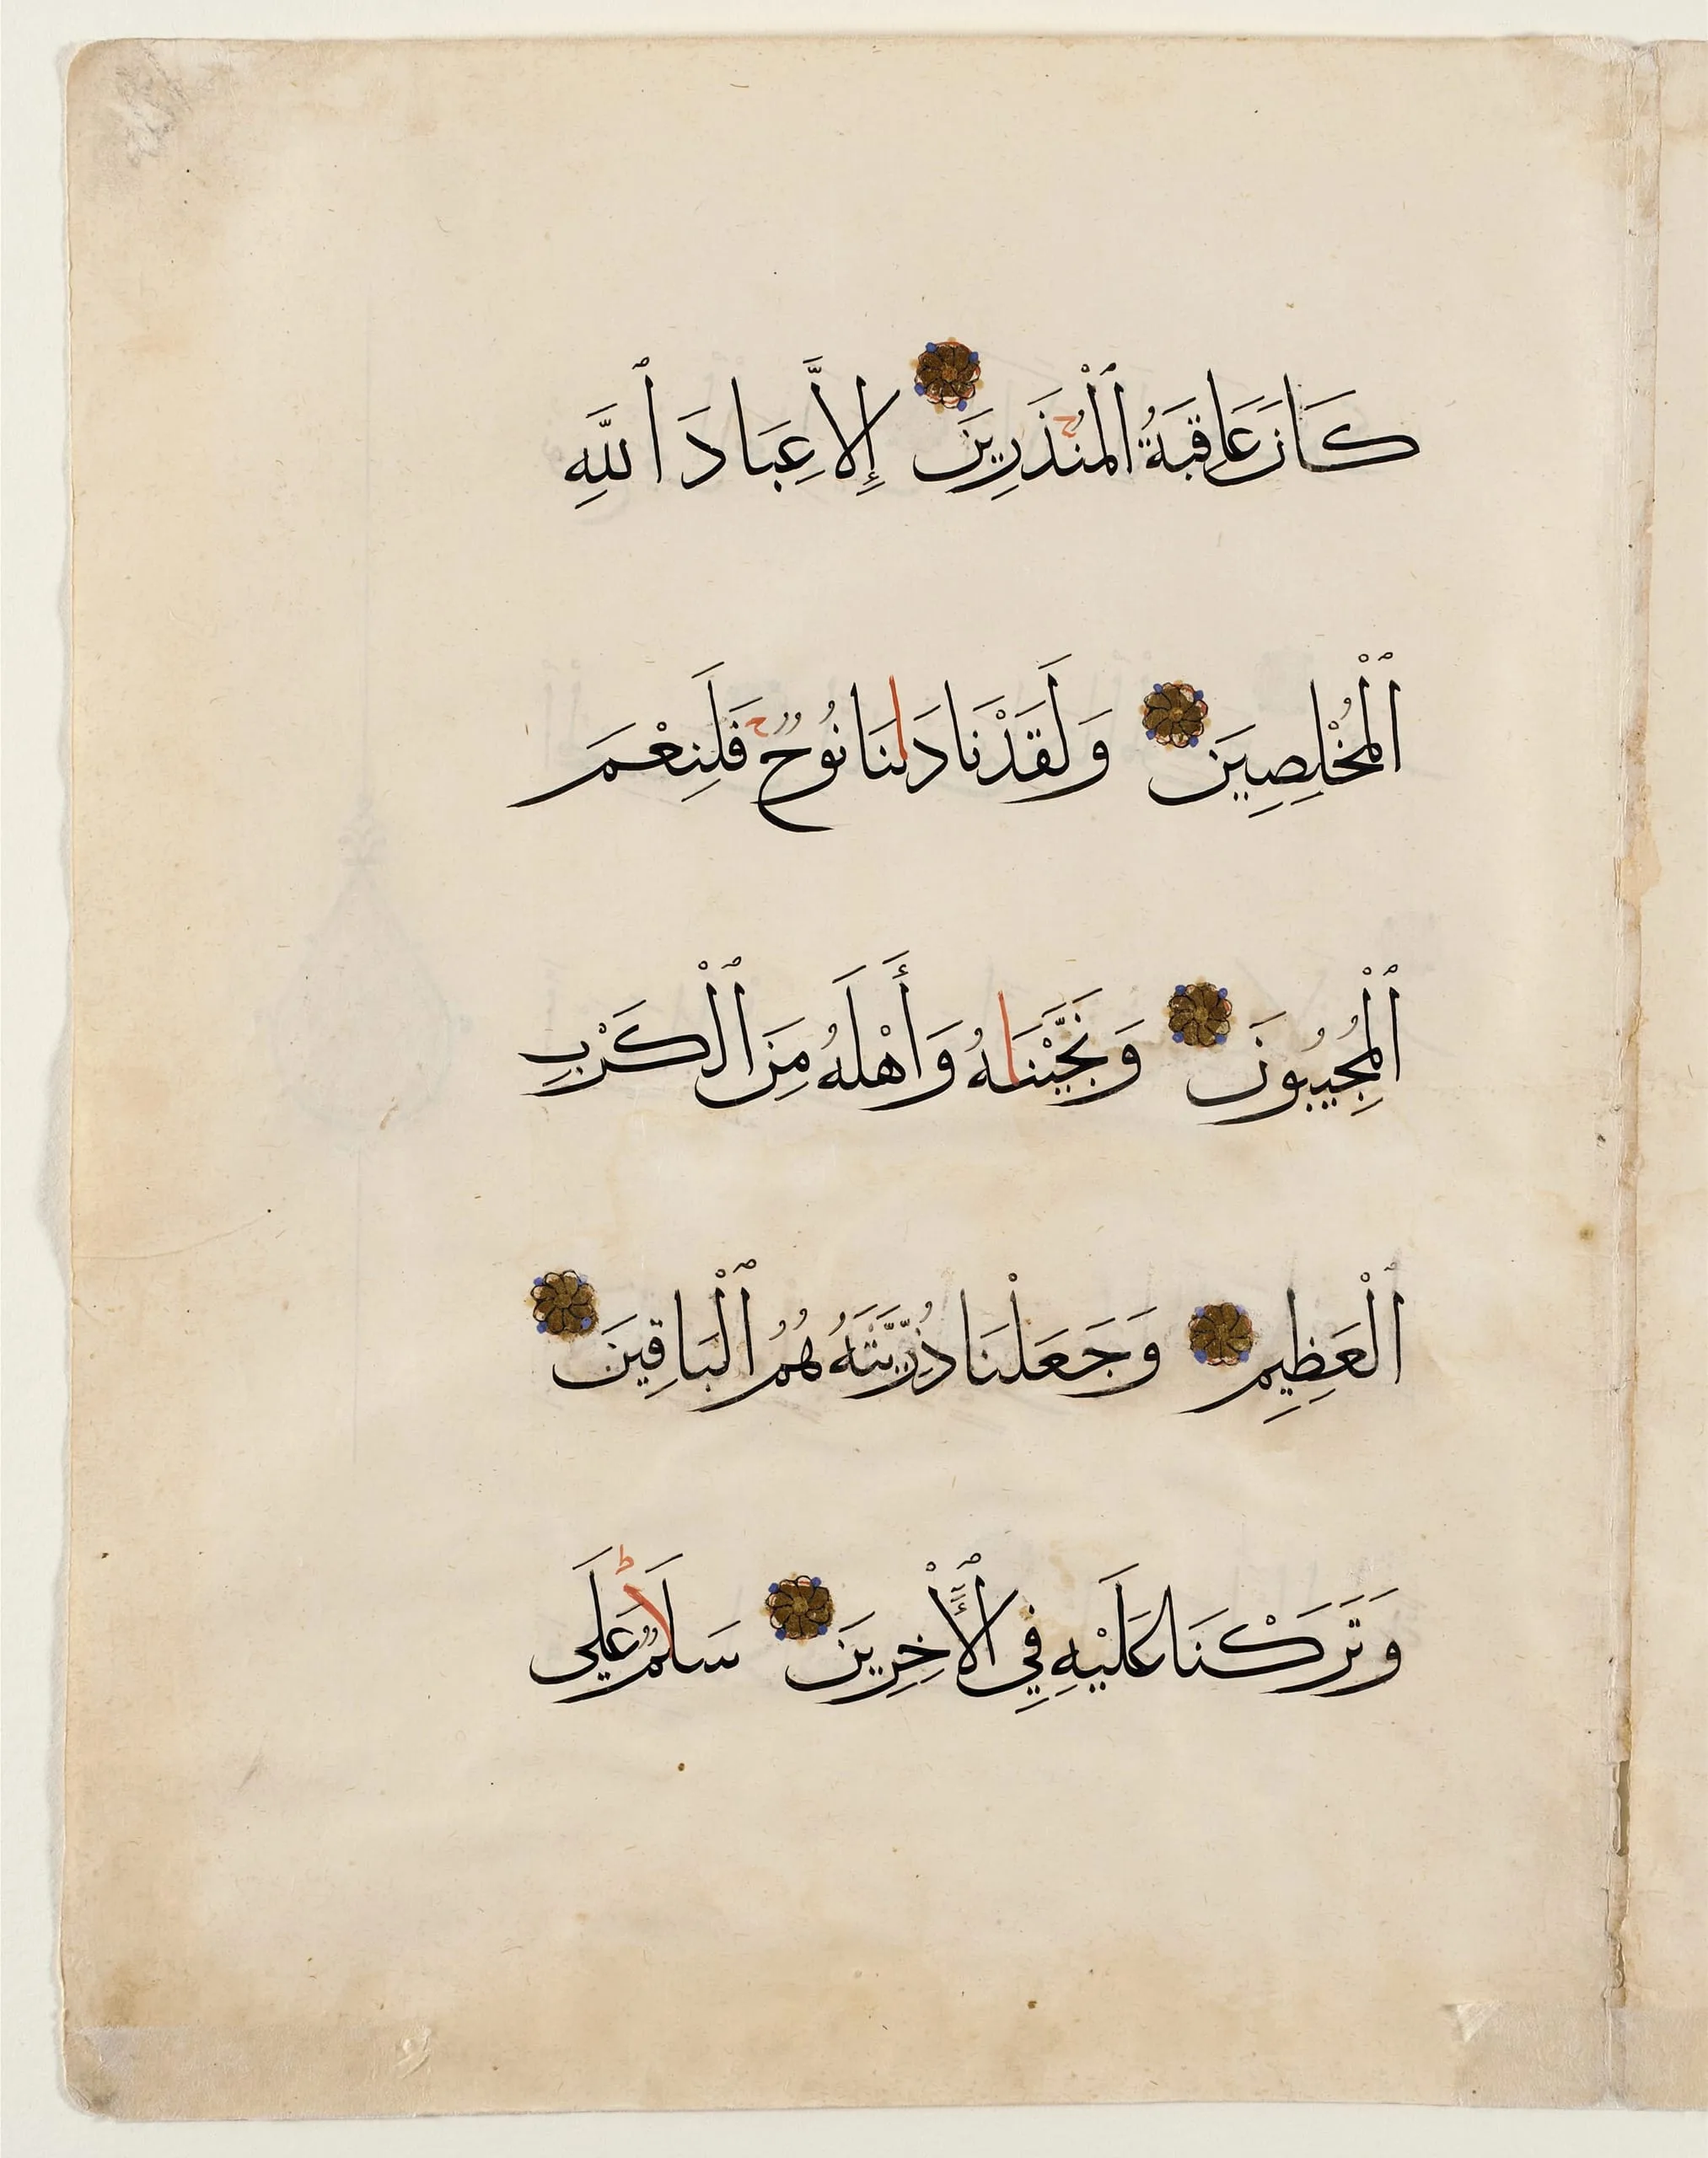 كَانَ عَاقِبَةُ ٱلْمُنْذَرِينَ إِلَّا عِبَادَ ٱللَّهِ
ٱلْمُخْلِصِينَ وَلَقَدْ نَادَانَا نُوحٌ فَلَنِعْمَ
ٱلْمُجِيبُونَ وَنَجَّيْنَاهُ وَأَهْلَهُ مِنَ ٱلْكَرْبِ
ٱلْعَظِيمِ وَجَعَلْنَا ذُرِّيَّتَهُ هُمُ ٱلْبَاقِينَ
وَتَرَكْنَا عَلَيْهِ فِي ٱلْأَخِرِينَ سَلَامٌ عَلَى